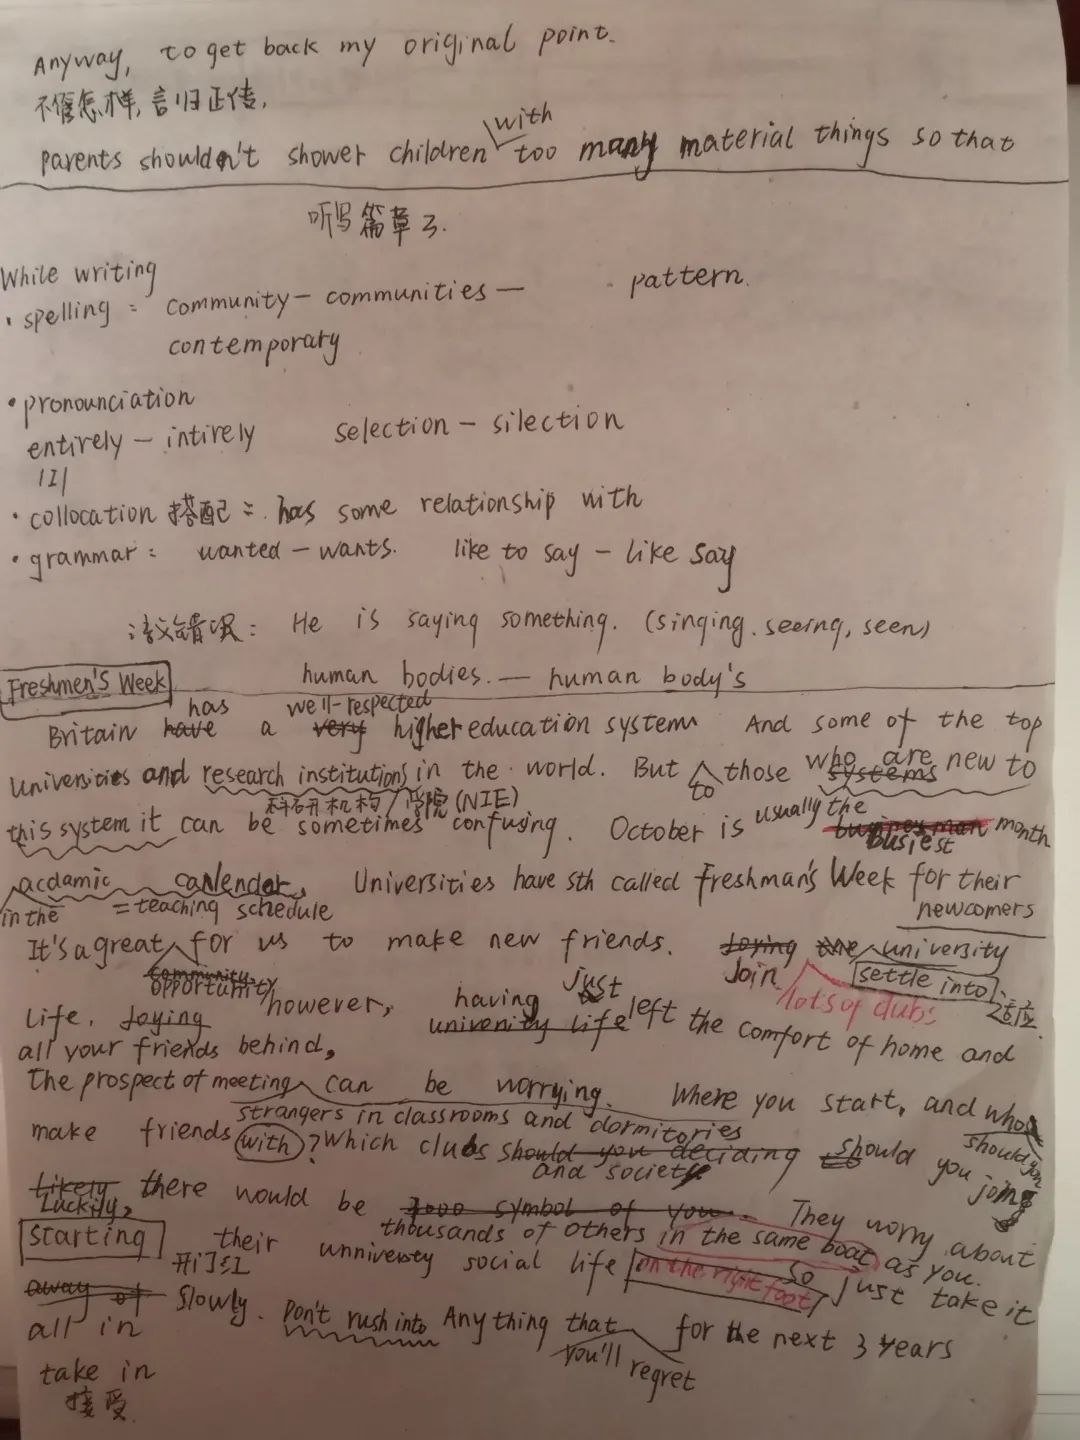 Anyway, to get back my original point.
不管怎样,言归正传,
with
parents shouldn't shower children too many material things so that
听写篇章3.
While writing
· spelling: community — communities — pattern.
contemporary
· pronounciation
entirely — intirely selection — silection
/I/
· collocation 搭配: has some relationship with
· grammar: wanted — wants. like to say — like say
错误: He is saying something. (singing. seeing, seen)
human bodies. — human body's
Freshmen's Week
has well-respected
Britain have a very higher education system And some of the top
who are
Universities and research institutions in the world. But those systems new to
to
科研机构/学院(NIE)
usually the
this system it can be sometimes confusing. October is businessman month
busiest
acdamic calendar, Universities have sth called Freshman's Week for their
in the = teaching schedule newcomers
It's a great for us to make new friends. Joying the university
community Join settle into
opportunity lots of clubs 适应
just
Life. Joying however, having university life left the comfort of home and
all your friends behind,
The prospect of meeting can be worrying. Where you start, and who
strangers in classrooms and dormitories should you
make friends with? Which clubs should you deciding to should you join
and society
Likely there would be 2000 symbol of you. They worry about
Luckily, thousands of others in the same boat as you.
starting their unniversty social life on the right foot So just take it
开门红
away of slowly. Don't rush into Anything that for the next 3 years
all in you'll regret
take in
接受.